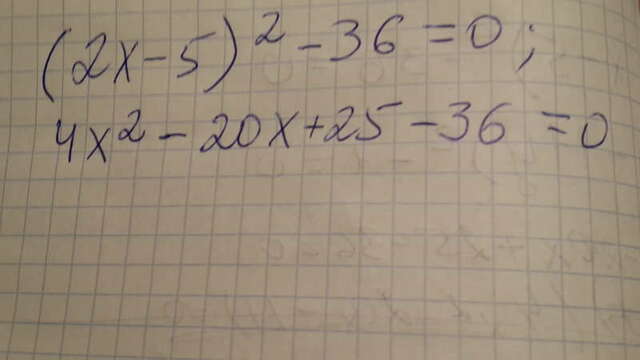 (2x-5)² - 36 = 0;
4x² - 20x + 25 - 36 = 0